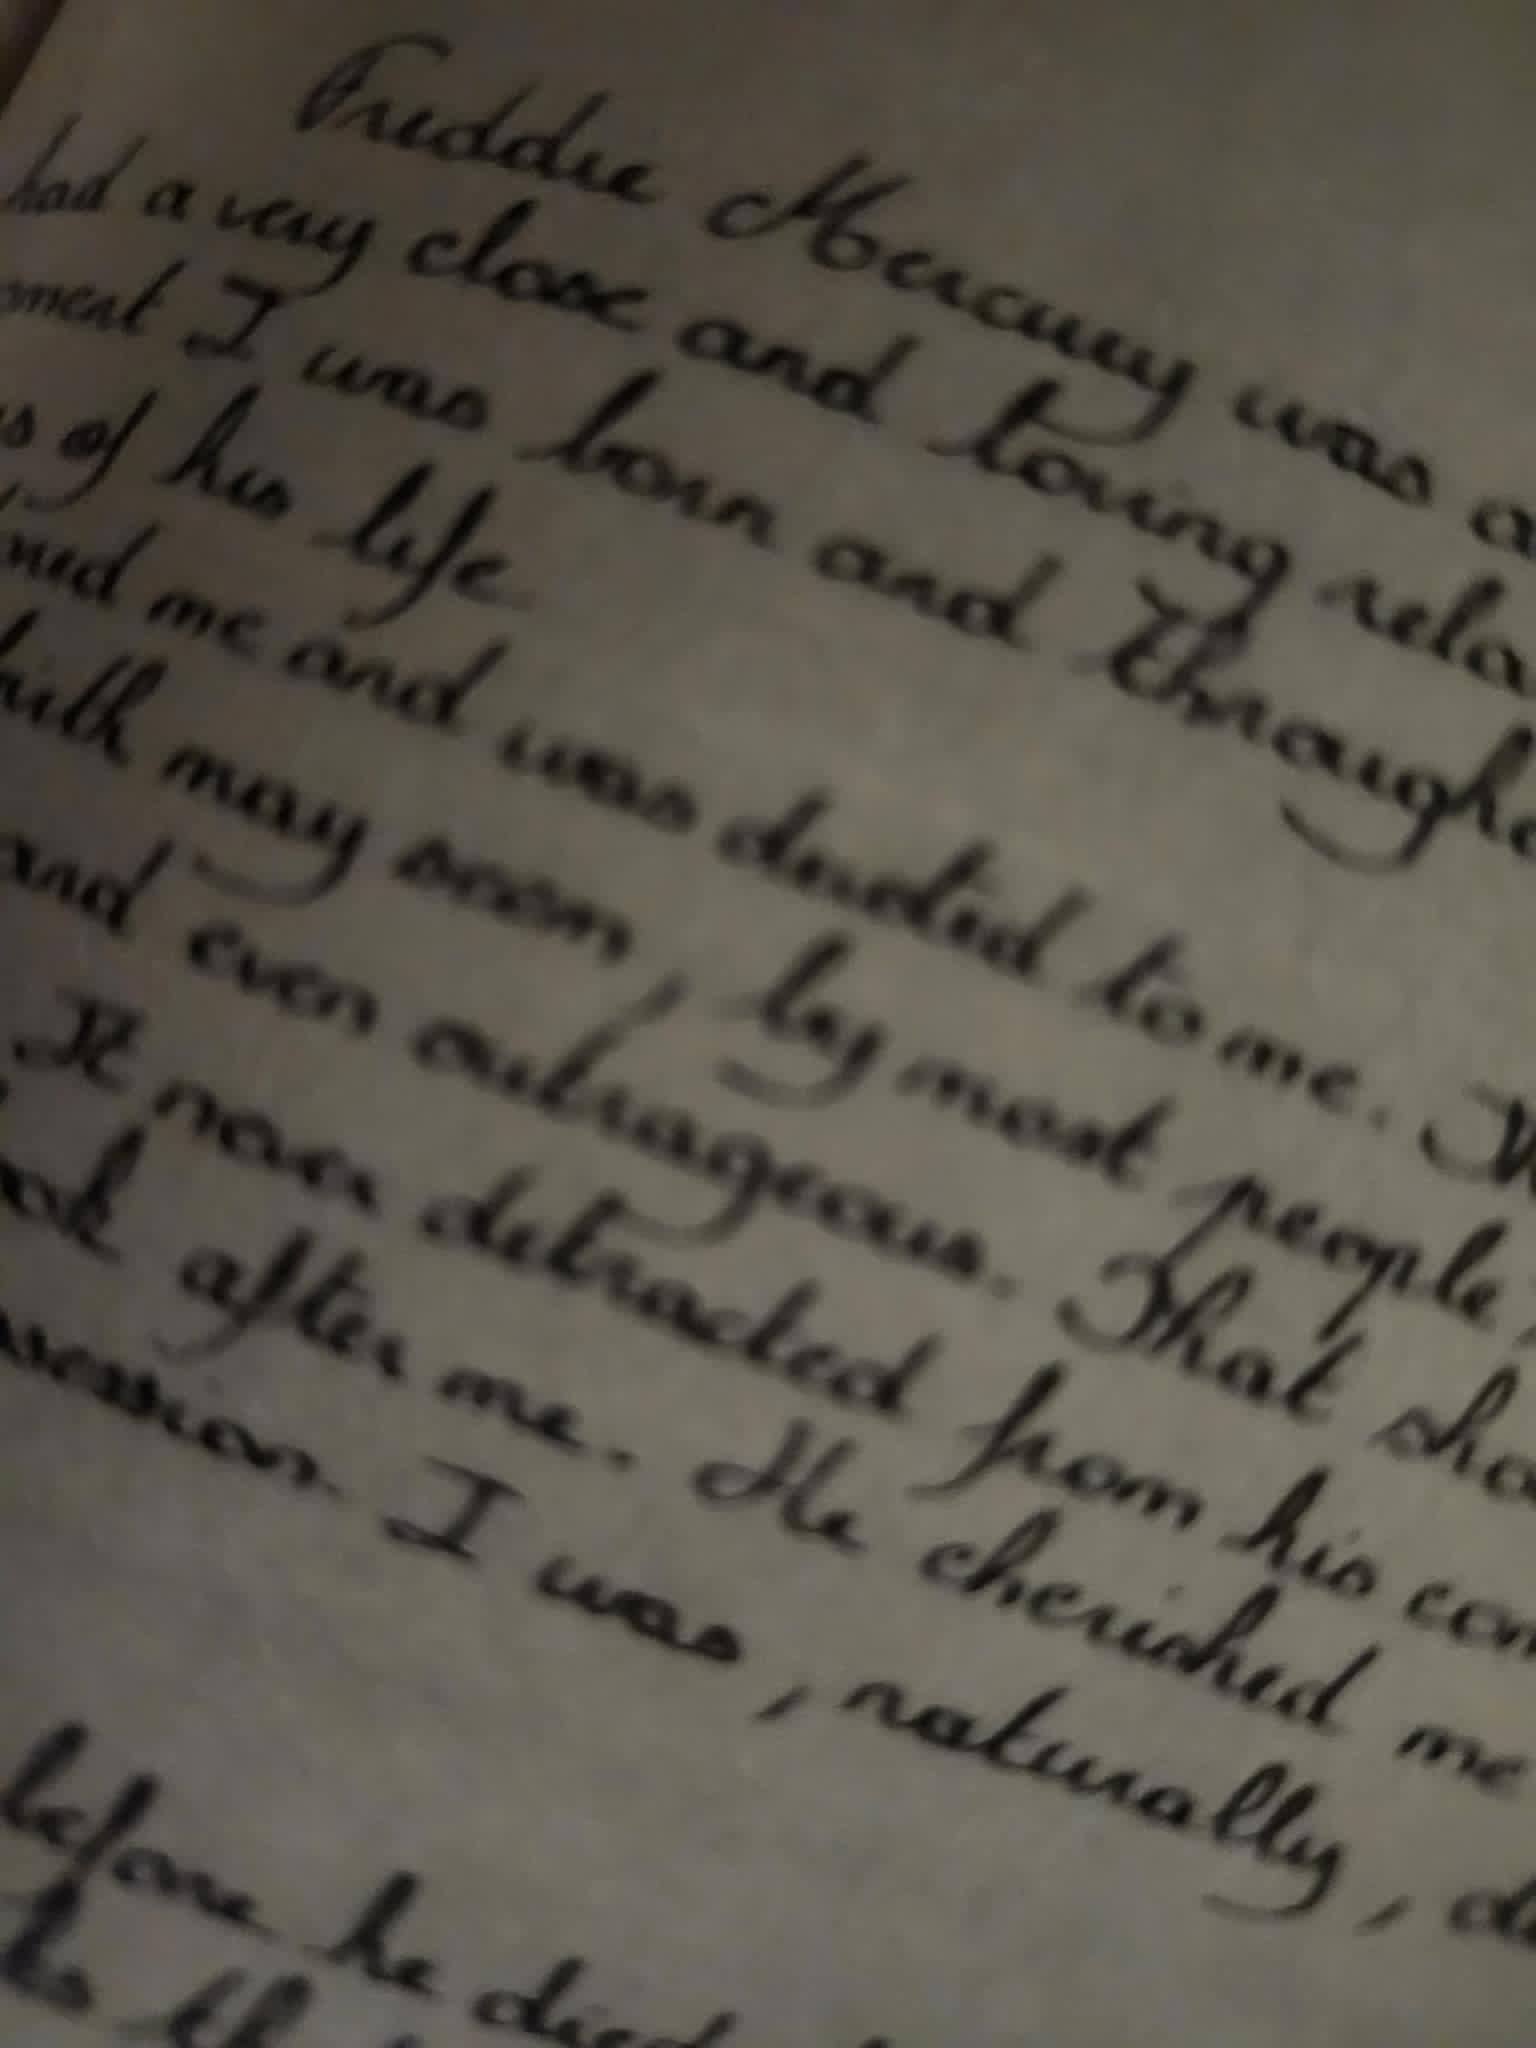 Freddie Mercury was a
had a very close and loving rela
oment I was born and througho
s of his life.
and me and was devoted to me.
birth may seem, by most people,
and even outrageous. That sho
It never detracted from his com
ook after me. He cherished me
ssession. I was, naturally,
before he died